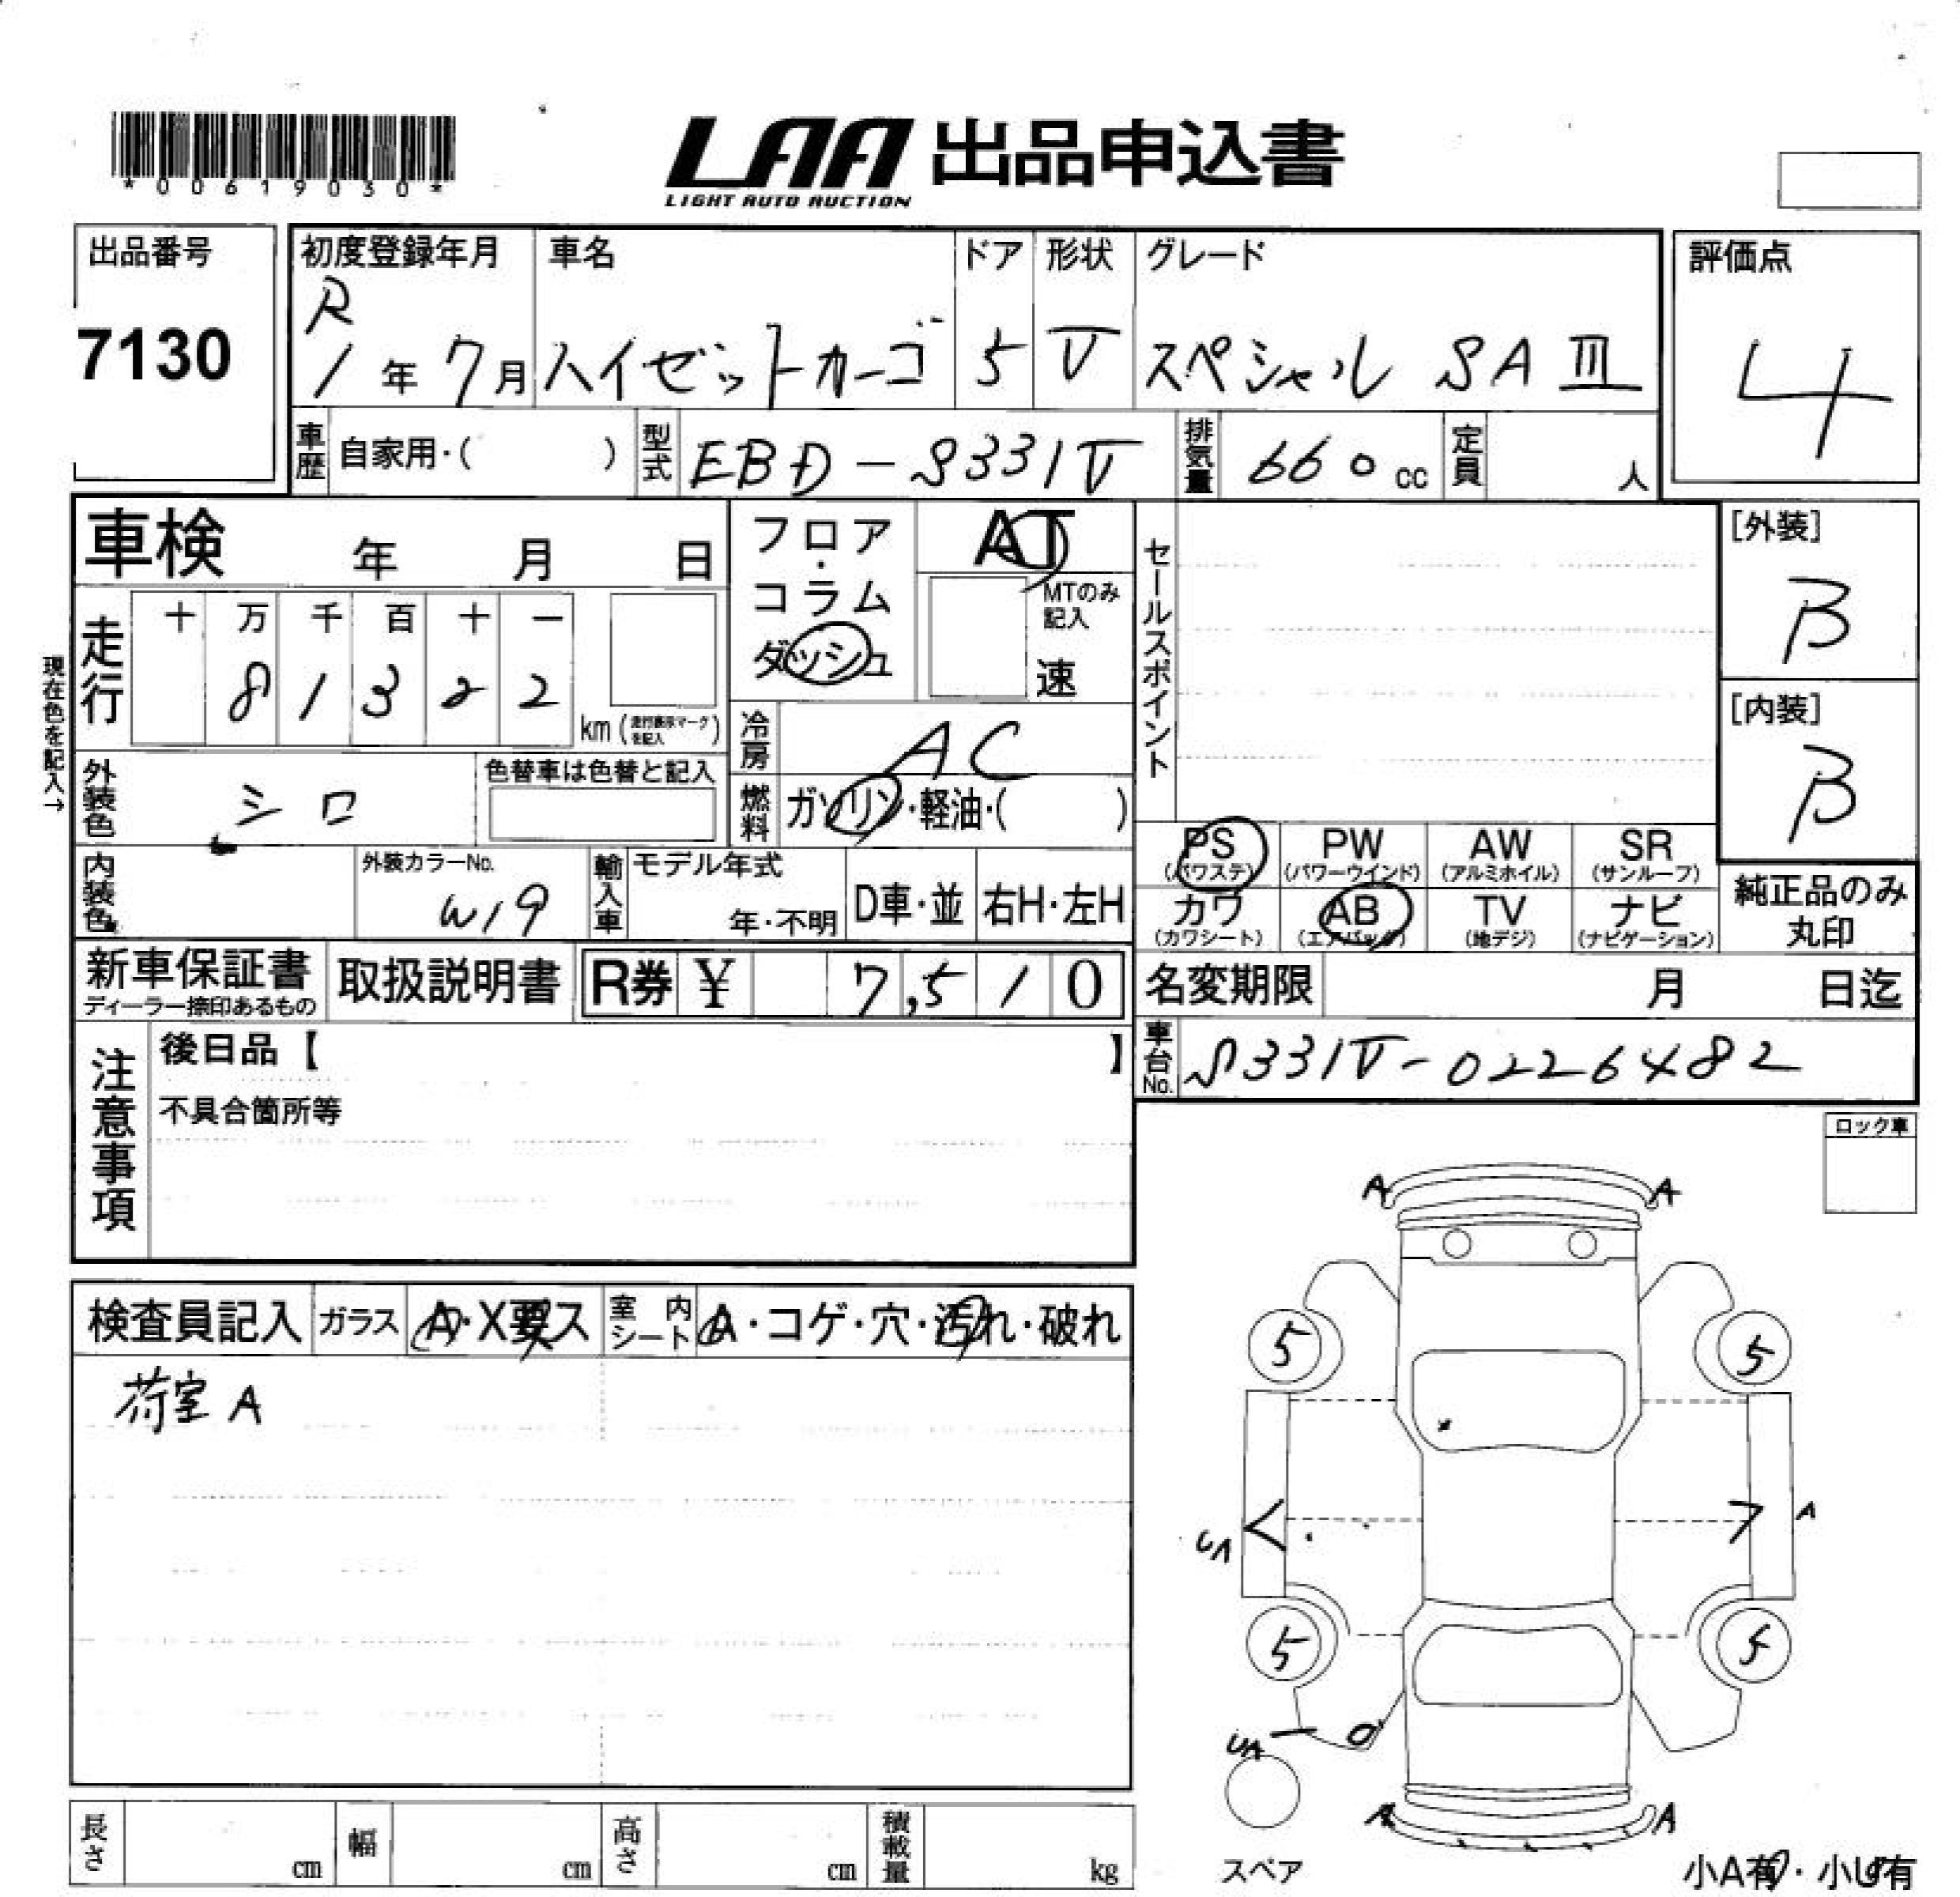 *00619030*
LAA 出品申込書
LIGHT AUTO AUCTION
出品番号
7130
初度登録年月
R
1年7月
車名
ハイゼットカーゴ
ドア
5
形状
V
グレード
スペシャル SAⅢ
評価点
4
車歴
自家用・( )
型式
EBD-S331V
排気量
660cc
定員
人
車検 年 月 日
フロア・コラム
ダッシュ
AT
MTのみ記入
速
現在色を記入→
走行
十 万 千 百 十 一
8 1 3 2 2
km (走行表示マークを記入)
冷房
AC
燃料
ガソリン・軽油・( )
外装色
シロ
色替車は色替と記入
内装色
外装カラーNo.
W19
輸入車
モデル年式
年・不明
D車・並
右H・左H
セールスポイント
[外装]
B
[内装]
B
PS (パワステ)
PW (パワーウインド)
AW (アルミホイル)
SR (サンルーフ)
カワ (カワシート)
AB (エアバッグ)
TV (地デジ)
ナビ (ナビゲーション)
純正品のみ
丸印
新車保証書
ディーラー捺印あるもの
取扱説明書
R券 ¥ 7,510
名変期限 月 日迄
車台No.
S331V-0226482
注意事項
後日品【 】
不具合箇所等
ロック車
検査員記入
ガラス
A・X要ス
室内シート
A・コゲ・穴・汚れ・破れ
荷室 A
A A
5 5
UA A
5 5
UA
A A
スペア
小A有・小U有
長さ cm
幅 cm
高さ cm
積載量 kg